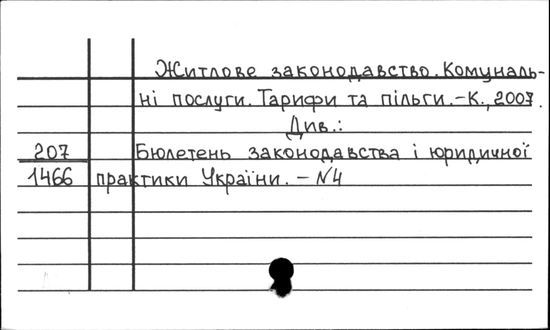 Житлове законодавство. Комуналь-
ні послуги. Тарифи та пільги. – К., 2007.
Див.:
207 Бюлетень законодавства і юридичної
1466 практики України. – N4